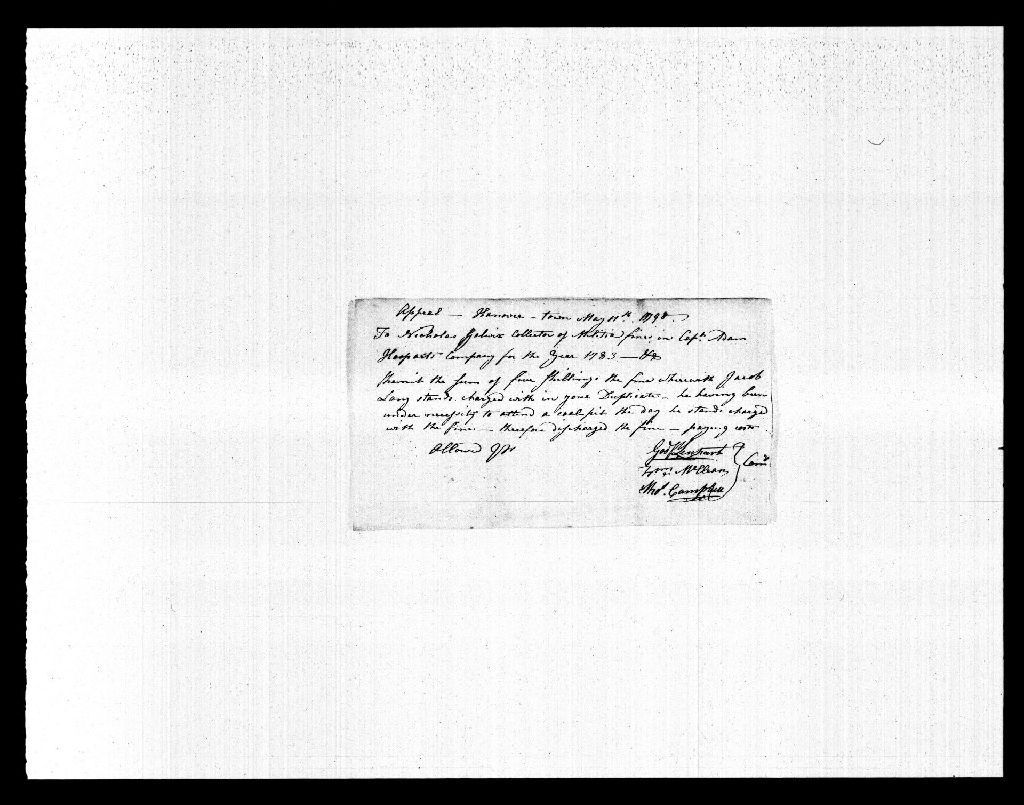 Appeal — Hanover-town May 11th 1790
To Nicholas Gelwix Collector of Militia fines in Capt. Adam
Company for the Year 1783 —
Remit the sum of five Shillings the fine wherewith Jacob
Lang stands charged with in your Duplicate — he having been
under necessity to attend a coal pit the day he stands charged
with the fine — therefore discharged the fine — paying costs
Allowed
Lenhart
McClean
Thos. Campbell